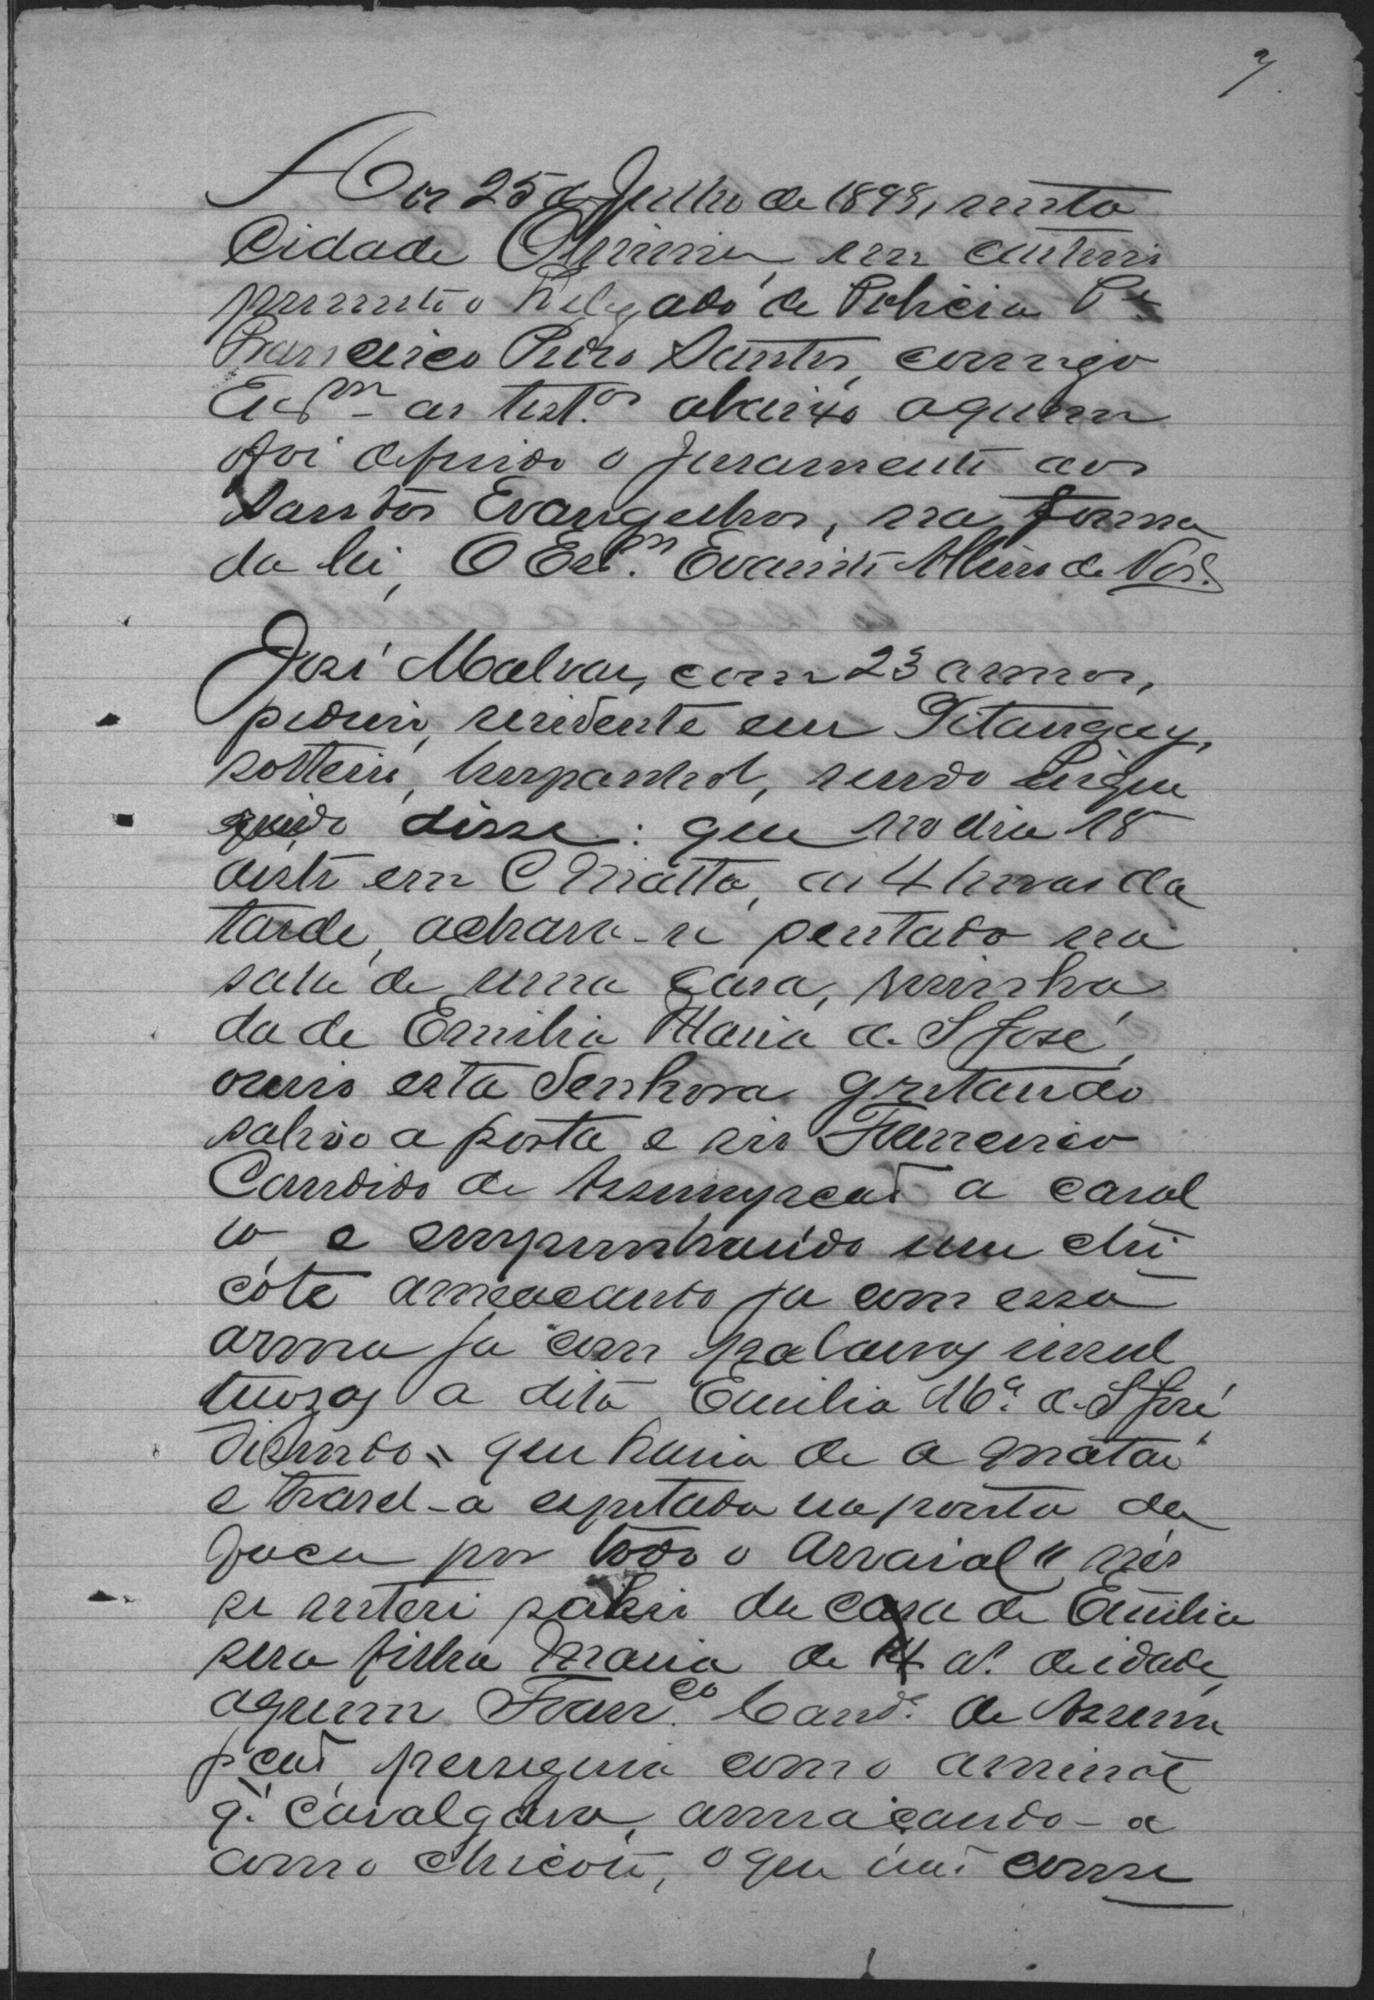 7
Aos 25 de Julho de 1898, nesta
Cidade Oliveira, em
o Delegado de Policia
Francisco Pedro Santos, comigo
Escm as test.as abaixo aquem
foi deferido o juramento aos
Santos Evangelhos, na forma
da lei, O Escm
José Malvar, com 23 annos,
residente em Pitanguy,
solteiro, hespanhol, sendo inque
rido disse: que no dia 18
deste em C Matto, as 4 horas da
tarde, achava-se sentado na
sala de uma casa, visinha
da de Emilia Maria de S José,
ouvio esta Senhora gritando
sahio a porta e vio Francisco
Candido de Assumpcaõ a caval
lo e empunhando um chi
cote ameacando ja com essa
arma ja com palavras insul
tuozas a dita Emilia Mª. de S José
dizendo " que havia de a matar
e trazel-a espetada na ponta da
faca por todo o arraial " nes
se interi sahio da casa de Emilia
sua filha Maria de 14 aˢ. de idade,
aquem Fran.co Cand.º de Assum
pcaõ, perseguia com o animal
q.' cavalgava, ameaçando-a
com o chicote, o que naõ conse